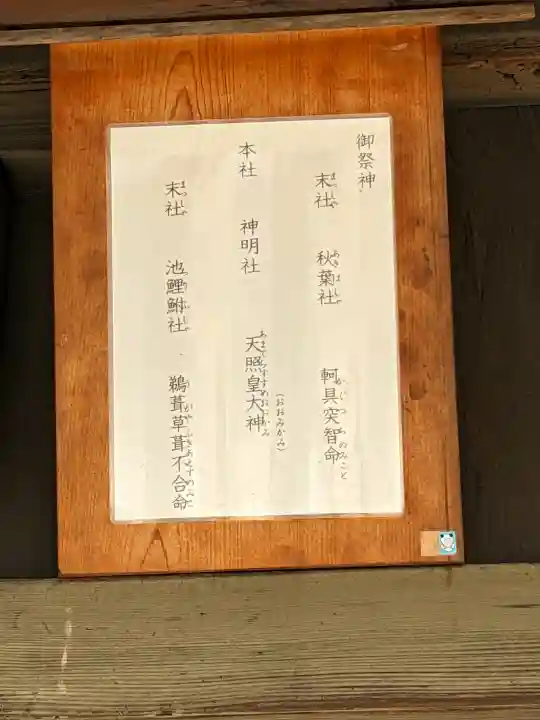 御祭神
末社 秋葉社 軻具突智命
本社 神明社 天照皇大神
(おおみかみ)
末社 池鯉鮒社 鵜葺草葺不合命